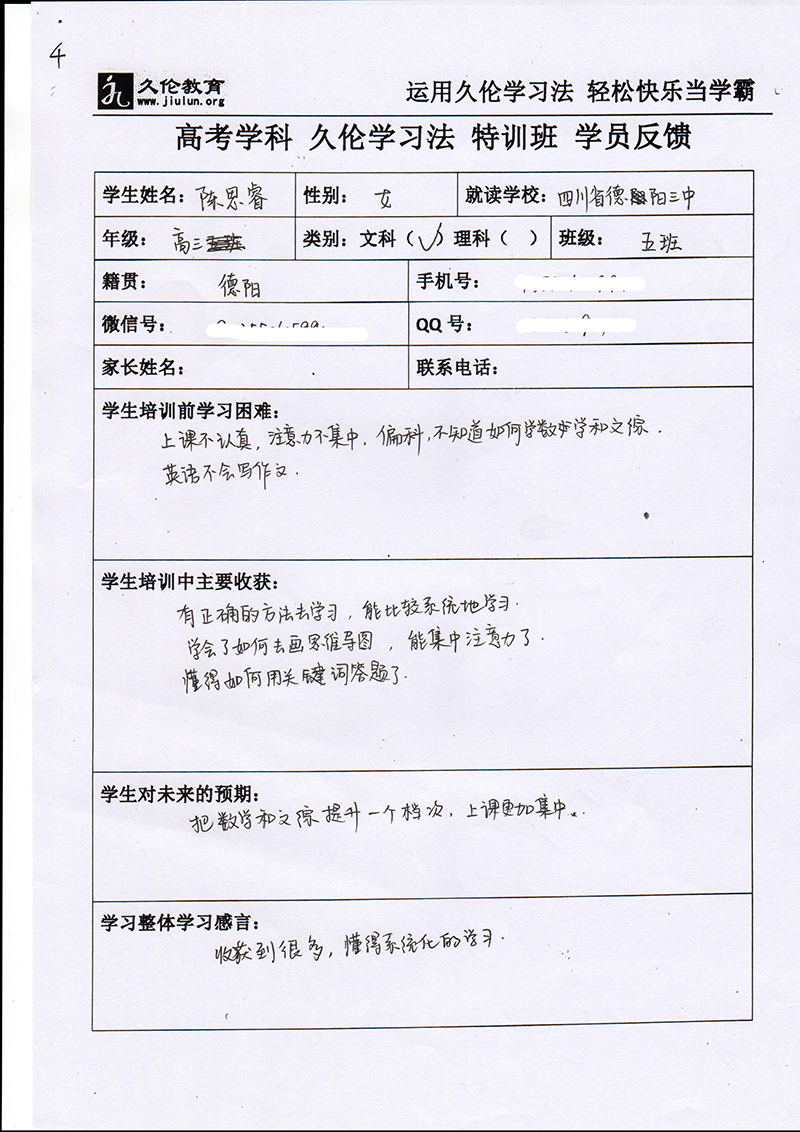 4
久伦教育
www.jiulun.org
运用久伦学习法 轻松快乐当学霸
高考学科 久伦学习法 特训班 学员反馈
学生姓名：陈思睿 性别：女 就读学校：四川省德阳三中
年级：高三 类别：文科（√）理科（ ） 班级：五班
籍贯：德阳 手机号：
微信号： QQ 号：
家长姓名： 联系电话：
学生培训前学习困难：
上课不认真，注意力不集中，偏科，不知道如何学数学和文综．
英语不会写作文．
学生培训中主要收获：
有正确的方法去学习，能比较系统地学习．
学会了如何去画思维导图，能集中注意力了．
懂得如何用关键词答题了．
学生对未来的预期：
把数学和文综提升一个档次，上课更加集中．
学习整体学习感言：
收获到很多，懂得系统化的学习．